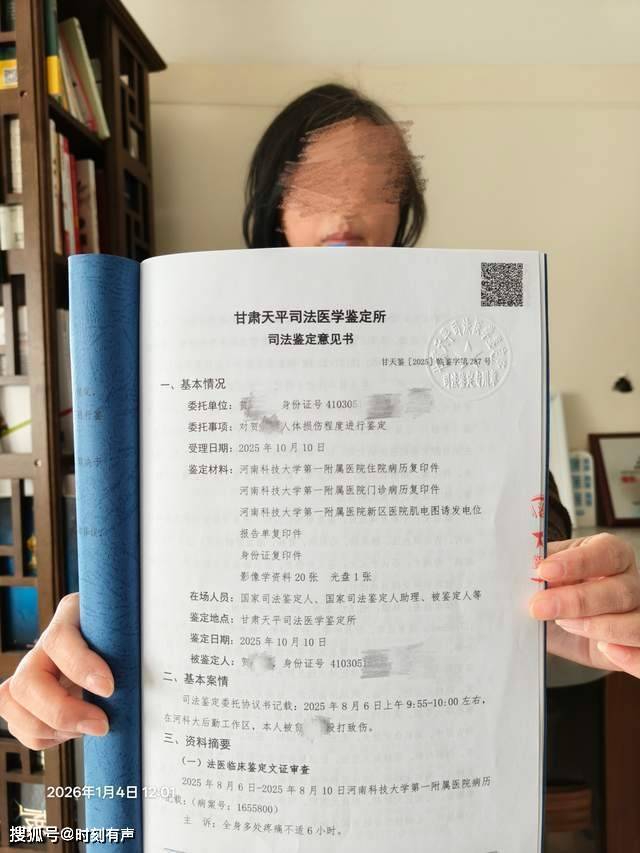 甘肃天平司法医学鉴定所
司法鉴定意见书
甘天鉴［2025］临鉴字第 287 号
一、基本情况
委托单位：贺 身份证号 410305
委托事项：对贺 人体损伤程度进行鉴定
受理日期：2025 年 10 月 10 日
鉴定材料：河南科技大学第一附属医院住院病历复印件
河南科技大学第一附属医院门诊病历复印件
河南科技大学第一附属医院新区医院肌电图诱发电位
报告单复印件
身份证复印件
影像学资料 20 张 光盘 1 张
在场人员：国家司法鉴定人、国家司法鉴定人助理、被鉴定人等
鉴定地点：甘肃天平司法医学鉴定所
鉴定日期：2025 年 10 月 10 日
被鉴定人：贺 身份证号 410305
二、基本案情
司法鉴定委托协议书记载：2025 年 8 月 6 日上午 9:55-10:00 左右，
在河科大后勤工作区，本人被 殴打致伤。
三、资料摘要
（一）法医临床鉴定文证审查
2025 年 8 月 6 日-2025 年 8 月 10 日河南科技大学第一附属医院病历
记载：（病案号：1655800）
主 诉：全身多处疼痛不适 6 小时。
2026年1月4日 12:01
搜狐号@时刻有声